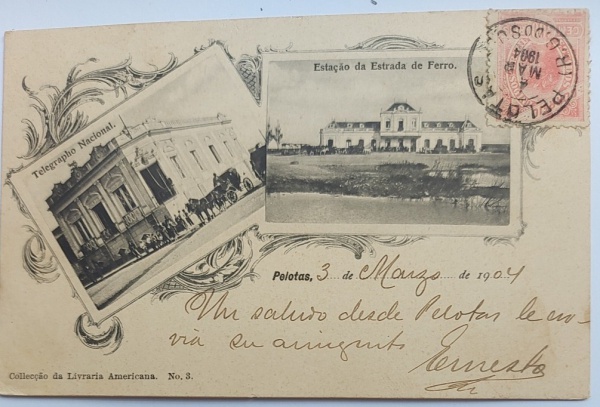 Telegrapho Nacional.
Estação da Estrada de Ferro.
PELOTAS
4
MAR
1904
(R.G. DO SUL)
Pelotas, 3 de Marzo de 1904
Un saludo desde Pelotas le en-
via su amiguito
Ernesto
Collecção da Livraria Americana. No. 3.